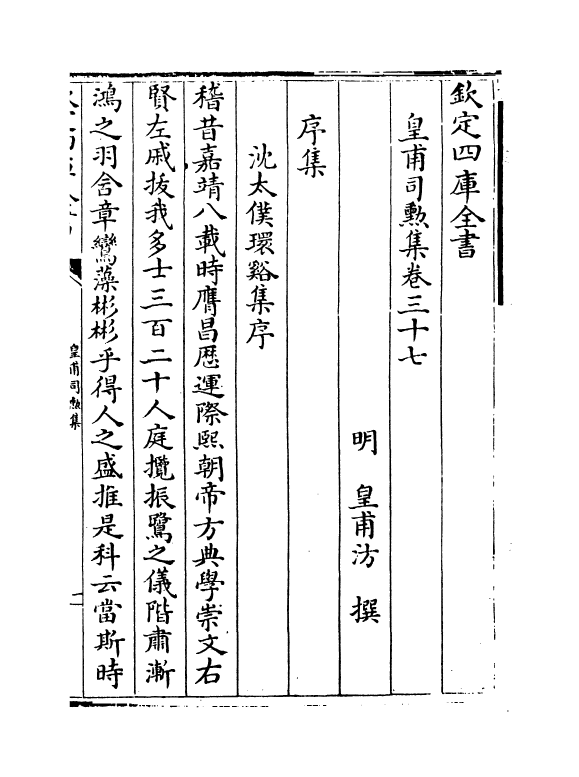 欽定四庫全書
皇甫司勲集卷三十七
明　皇甫汸　撰
序集
沈太僕環谿集序
稽昔嘉靖八載時膺昌厯運際熙朝帝方典學崇文右
賢左戚拔我多士三百二十人庭攬振鷺之儀階肅漸
鴻之羽含章鸞藻彬彬乎得人之盛推是科云當斯時
皇甫司勲集